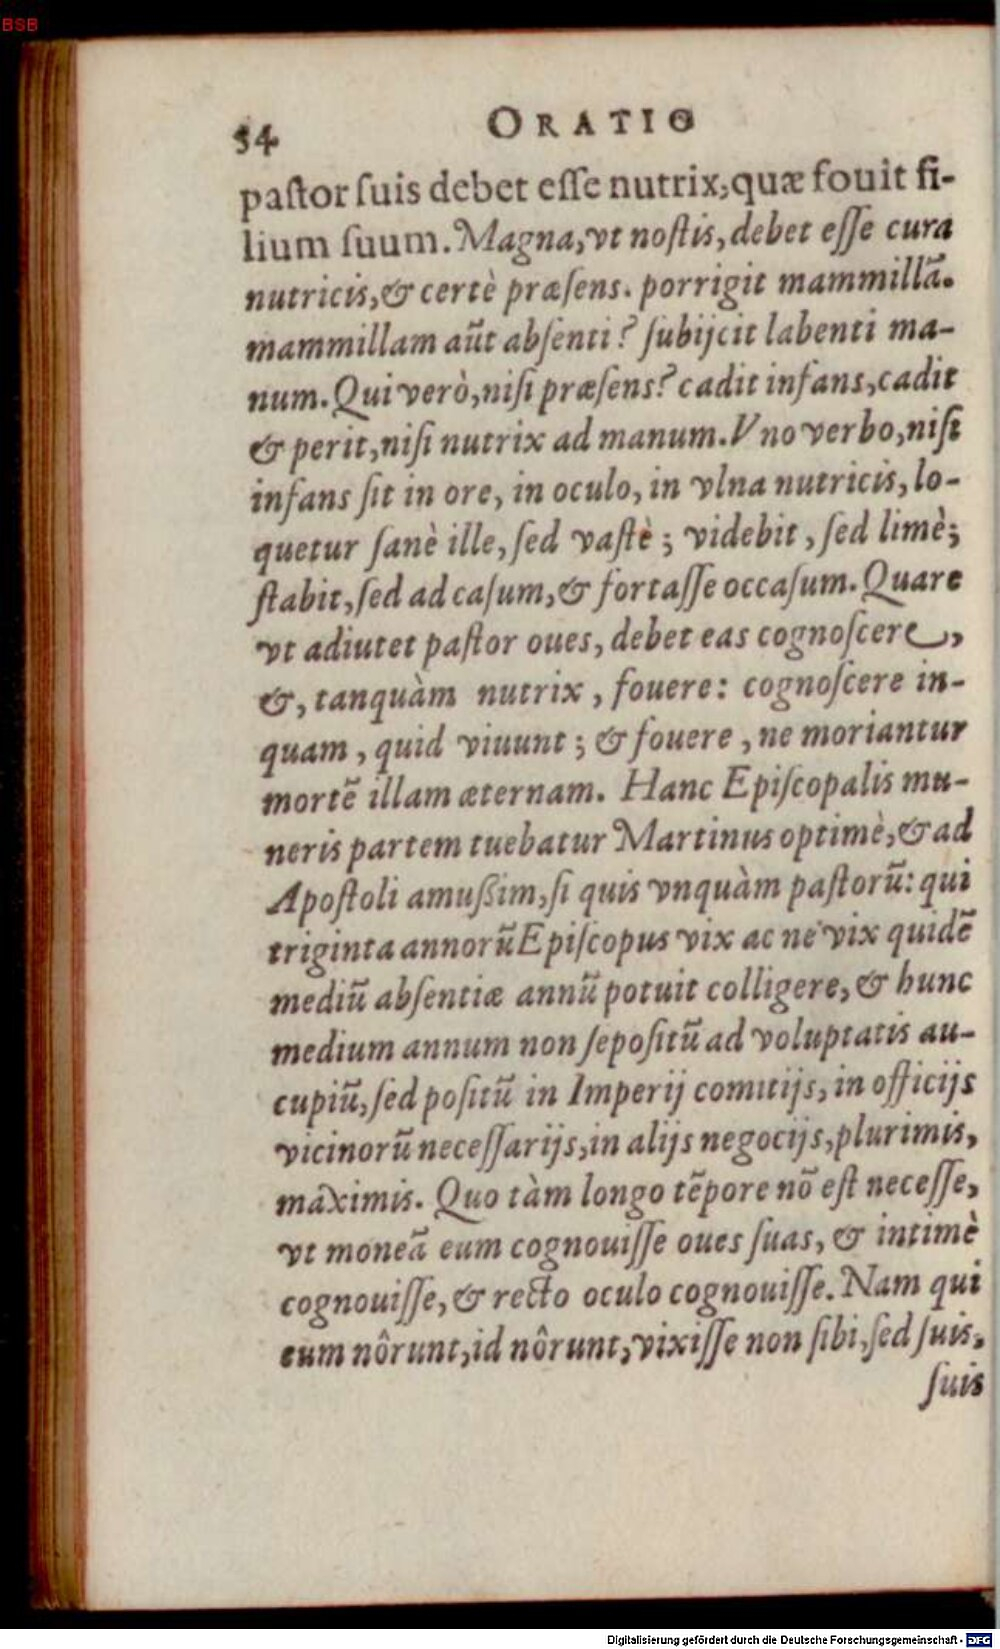 BSB
54 ORATIO
pastor suis debet esse nutrix, quæ fouit fi-
lium suum. Magna, vt nostis, debet esse cura
nutricis, & certè præsens. porrigit mammillã.
mammillam aũt absenti? subijcit labenti ma-
num. Qui verò, nisi præsens? cadit infans, cadit
& perit, nisi nutrix ad manum. Vno verbo, nisi
infans sit in ore, in oculo, in vlna nutricis, lo-
quetur sanè ille, sed vastè; videbit, sed limè;
stabit, sed ad casum, & fortasse occasum. Quare
vt adiutet pastor oues, debet eas cognoscere,
&, tanquàm nutrix, fouere: cognoscere in-
quam, quid viuunt; & fouere, ne moriantur
mortẽ illam æternam. Hanc Episcopalis mu-
neris partem tuebatur Martinus optimè, & ad
Apostoli amußim, si quis vnquàm pastorũ: qui
triginta annorũ Episcopus vix ac ne vix quidẽ
mediũ absentiæ annũ potuit colligere, & hunc
medium annum non sepositũ ad voluptatis au-
cupiũ, sed positũ in Imperij comitijs, in officijs
vicinorũ necessarijs, in alijs negocijs, plurimis,
maximis. Quo tàm longo tẽpore nõ est necesse,
vt moneã eum cognouisse oues suas, & intimè
cognouisse, & recto oculo cognouisse. Nam qui
eum nôrunt, id nôrunt, vixisse non sibi, sed suis,
suis
Digitalisierung gefördert durch die Deutsche Forschungsgemeinschaft - DFG